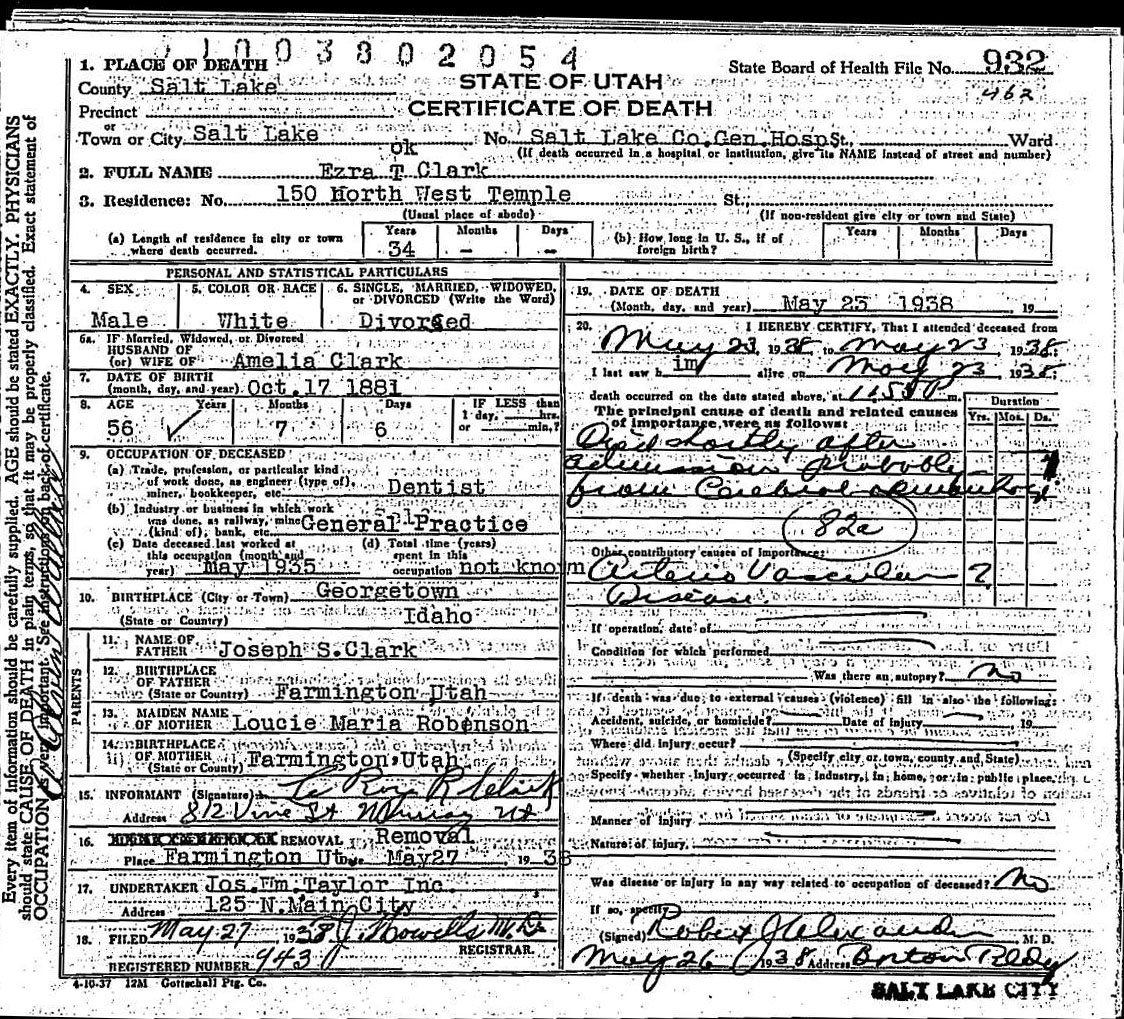 1003802054
1. PLACE OF DEATH
State Board of Health File No. 932
County Salt Lake
STATE OF UTAH
462
Precinct
CERTIFICATE OF DEATH
or
Town or City Salt Lake No. Salt Lake Co.Gen.Hosp St., Ward
(If death occurred in a hospital or institution, give its NAME instead of street and number)
ok
2. FULL NAME Ezra T Clark
3. Residence: No. 150 North West Temple St.,
(Usual place of abode) (If non-resident give city or town and State)
(a) Length of residence in city or town where death occurred. Years 34 Months - Days -
(b) How long in U. S., if of foreign birth? Years Months Days
PERSONAL AND STATISTICAL PARTICULARS
4. SEX 5. COLOR OR RACE 6. SINGLE, MARRIED, WIDOWED,
or DIVORCED (Write the Word)
Male White Divorced
6a. IF Married, Widowed, or Divorced
HUSBAND OF
(or) WIFE OF Amelia Clark
7. DATE OF BIRTH
(month, day, and year) Oct.17 1881
8. AGE Years Months Days IF LESS than
1 day, hrs.
56 7 6 or min.?
9. OCCUPATION OF DECEASED
(a) Trade, profession, or particular kind
of work done, as engineer (type of),
miner, bookkeeper, etc. Dentist
(b) Industry or business in which work
was done, as railway, mine
(kind of), bank, etc. General Practice
(c) Date deceased last worked at
this occupation (month and
year) May 1935
(d) Total time (years)
spent in this
occupation not known
10. BIRTHPLACE (City or Town) Georgetown
(State or Country) Idaho
PARENTS
11. NAME OF
FATHER Joseph S.Clark
12. BIRTHPLACE
OF FATHER
(State or Country) Farmington Utah
13. MAIDEN NAME
OF MOTHER Loucie Maria Robenson
14. BIRTHPLACE
OF MOTHER
(State or County) Farmington,Utah
15. INFORMANT (Signature) Le Roy R Clark
Address 812 Vine St Murray Ut
16. REMOVAL Removal
Place Farmington Ut Date May27 1938
17. UNDERTAKER Jos.Wm.Taylor Inc.
Address 125 N.Main City
18. FILED May 27 1938 J. Howells M.D.
REGISTRAR.
REGISTERED NUMBER 943
4-10-37 12M Gottschall Ptg. Co.
19. DATE OF DEATH
(Month, day, and year) May 23 1938 , 19
20. I HEREBY CERTIFY, That I attended deceased from
May 23, 1938, to May 23 1938;
I last saw him alive on May 23 1938;
death occurred on the date stated above, at 11:55 P m.
The principal cause of death and related causes
of importance were as follows:
Duration
Yrs. Mos. Ds.
Died shortly after
admission probably
from Cerebral
82a
Other contributory causes of importance:
Arterio Vascular ?
Disease.
If operation, date of
Condition for which performed
Was there an autopsy? No
If death was due to external causes (violence) fill in also the following:
Accident, suicide, or homicide? Date of injury 19
Where did injury occur?
(Specify city or town, county and State)
Specify whether injury occurred in industry, in home, or in public place.
Manner of injury
Nature of injury
Was disease or injury in any way related to occupation of deceased? No
If so, specify
(Signed) Robert J Alexander M. D.
May 26 1938 Address Boston Bldg
SALT LAKE CITY
Every item of information should be carefully supplied. AGE should be stated EXACTLY. PHYSICIANS
should state CAUSE OF DEATH in plain terms, so that it may be properly classified. Exact statement of
OCCUPATION very important. See instructions on back of certificate.